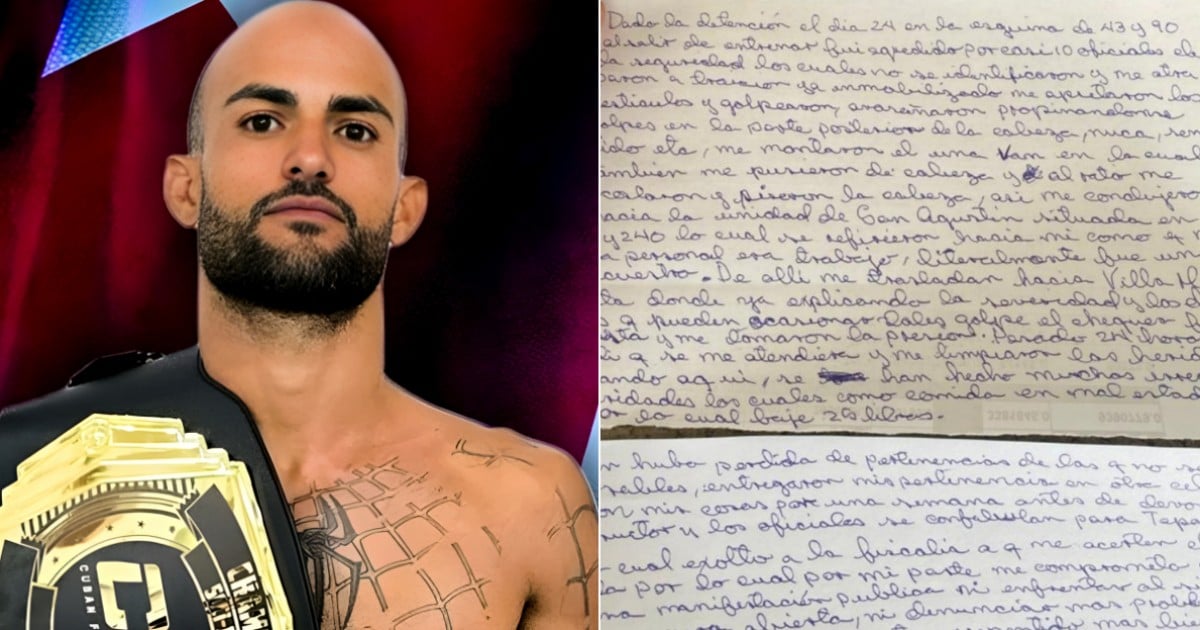 CUBAN F
Dado la detención el dia 24 en la esquina de 43 y 90
al salir de entrenar fui agredido por casi 10 oficiales de
la seguridad los cuales no se identificaron y me atra
paron a traicion ya inmobilizado me apretaron los
esticulos y golpearon, arañaron propinandome
lpes en la parte posterior de la cabeza, nuca,
ido eta, me montaron el una Van en la cual
ambien me pusieron de cabeza y al rato me
y pisaron la cabeza, asi me condujero
hacia la unidad de San Agustin situada en
y 240 lo cual se refirieron hacia mi como q
a personal era trabajo, literalmente fue un
cuestro. De alli me trasladan hacia Villa M
ta donde ya explicando la severidad y los d
s q pueden ocasionar tales golpe el chequeo
sta y me tomaron la presion. Pasado 24 hora
a q se me atendiera y me limpiaran las herid
ando aqui, se han hecho muchas irre
ridades los cuales como comida en mal estad
or lo cual baje 20 libras.
n hubo perdida de pertenencias de las q no
rebles, entregaron mis pertenencia en otra cel
on mis cosas por una semana antes de devo
y los oficiales se confabulan para Tapa
cual exolto a la fiscalia a q me acepten
ia por lo cual por mi parte me comprometo
na manifestación publica ni enfrentar al
abierta, ni denunciar mas probl
mas bie